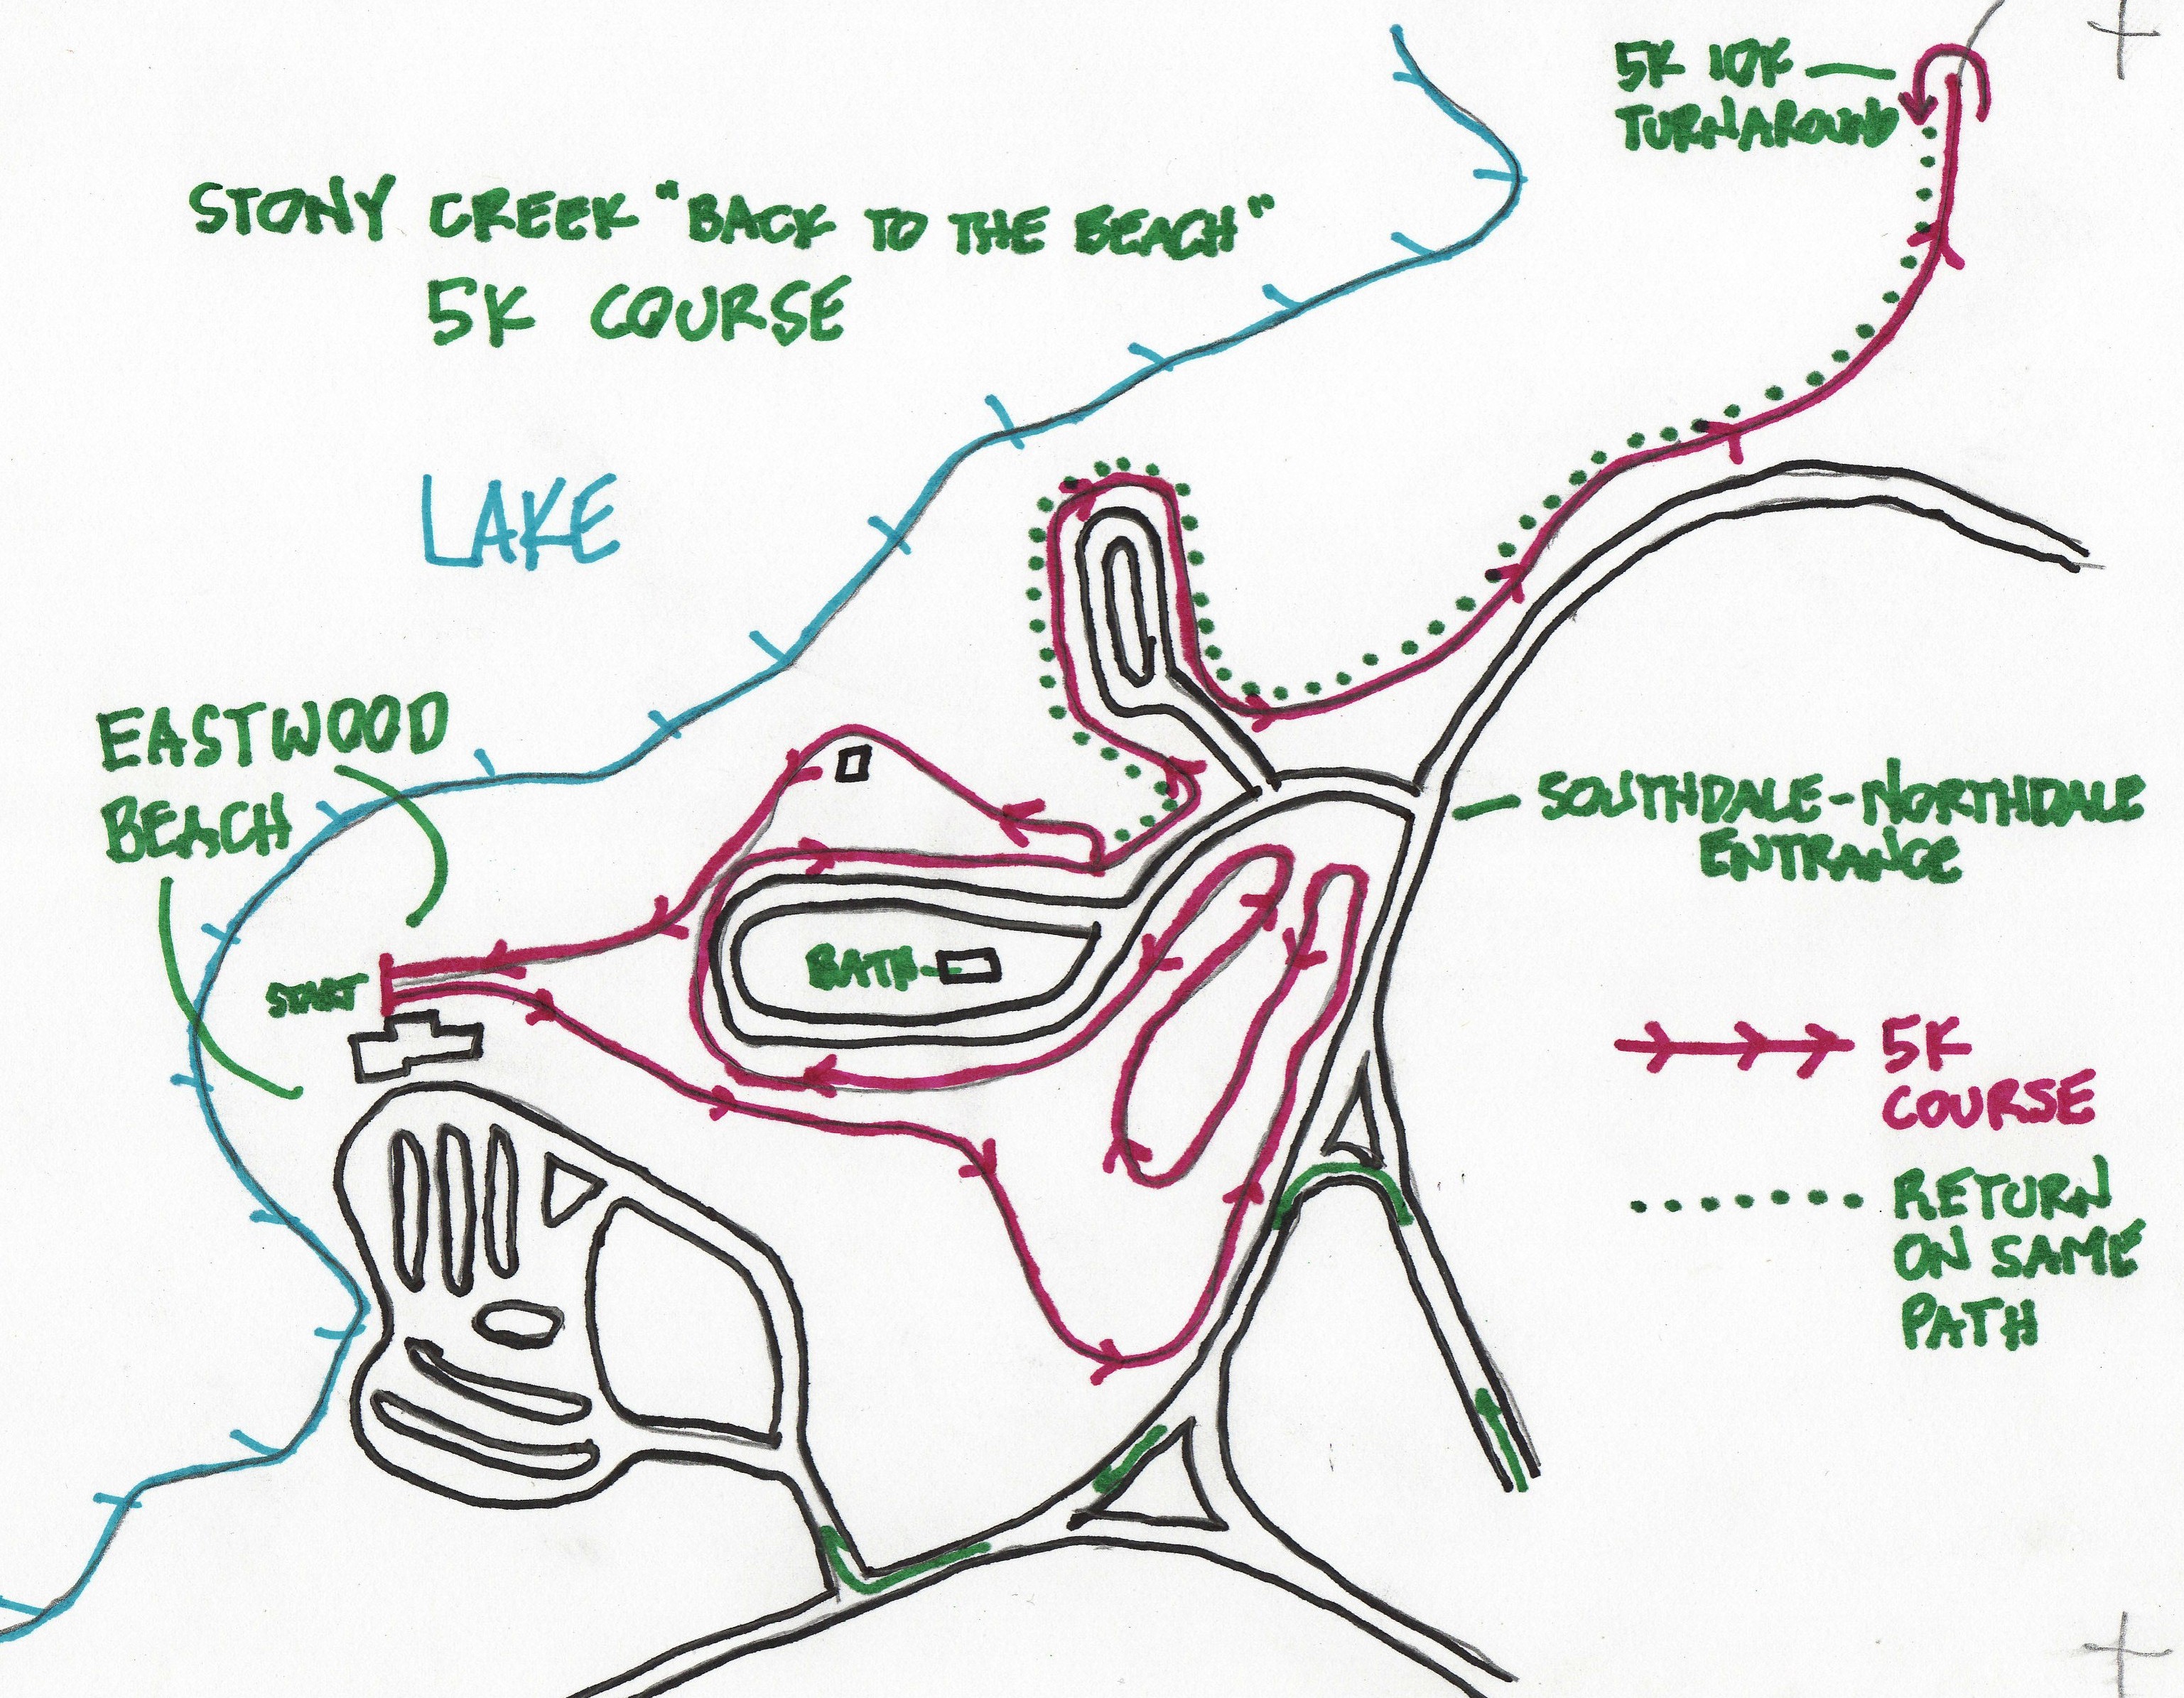 5K 10K
TURNAROUND
STONY CREEK "BACK TO THE BEACH"
5K COURSE
LAKE
EASTWOOD
BEACH
SOUTHDALE-NORTHDALE
ENTRANCE
BATH
START
5K
COURSE
RETURN
ON SAME
PATH